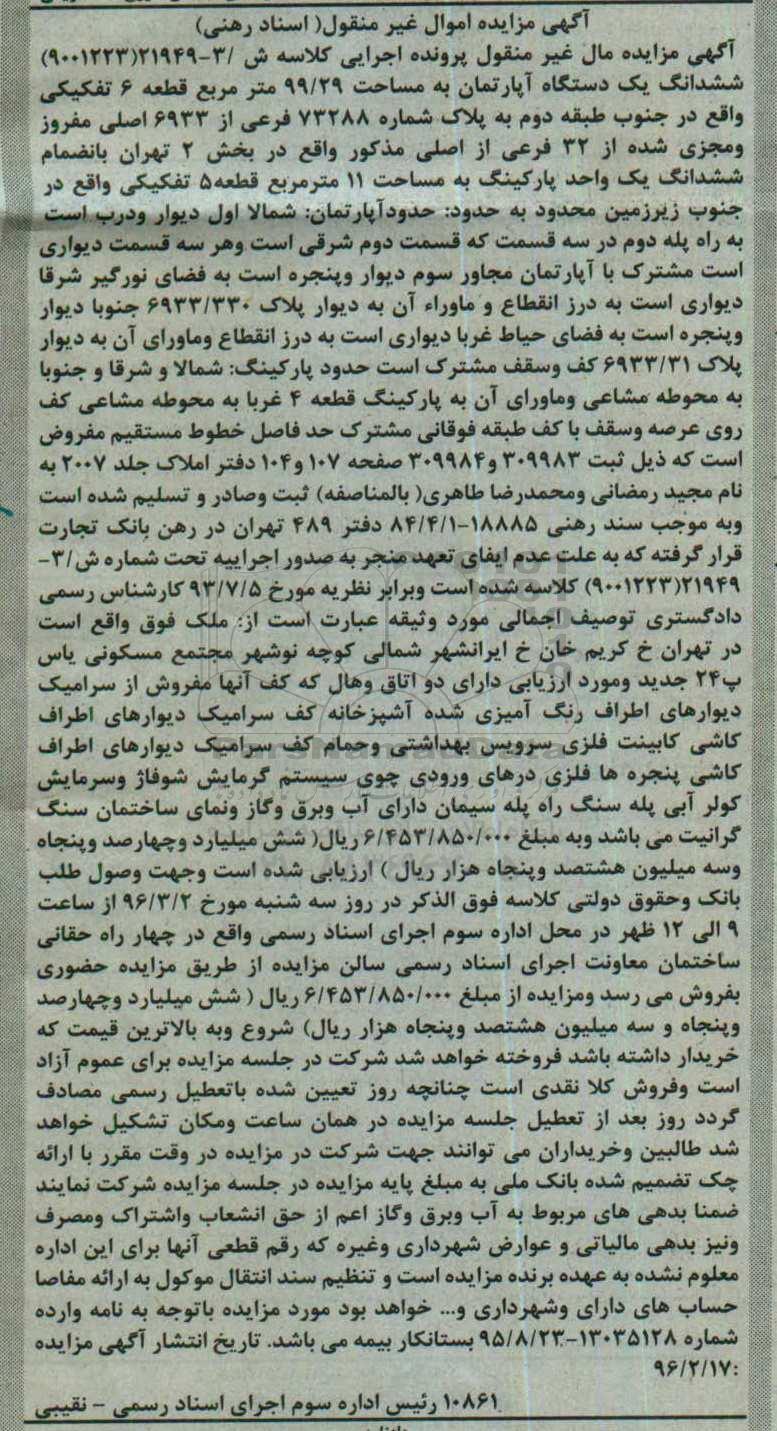 آگهی مزایده اموال غیر منقول( اسناد رهنی)
آگهی مزایده مال غیر منقول پرونده اجرایی کلاسه ش /۳-۲۱۹۴۹(۹۰۰۱۲۲۳)
ششدانگ یک دستگاه آپارتمان به مساحت ۹۹/۲۹ متر مربع قطعه ۶ تفکیکی
واقع در جنوب طبقه دوم به پلاک شماره ۷۳۲۸۸ فرعی از ۶۹۳۳ اصلی مفروز
ومجزی شده از ۳۲ فرعی از اصلی مذکور واقع در بخش ۲ تهران بانضمام
ششدانگ یک واحد پارکینگ به مساحت ۱۱ مترمربع قطعه۵ تفکیکی واقع در
جنوب زیرزمین محدود به حدود: حدودآپارتمان: شمالا اول دیوار ودرب است
به راه پله دوم در سه قسمت که قسمت دوم شرقی است وهر سه قسمت دیواری
است مشترک با آپارتمان مجاور سوم دیوار وپنجره است به فضای نورگیر شرقا
دیواری است به درز انقطاع و ماوراء آن به دیوار پلاک ۶۹۳۳/۳۳۰ جنوبا دیوار
وپنجره است به فضای حیاط غربا دیواری است به درز انقطاع وماورای آن به دیوار
پلاک ۶۹۳۳/۳۱ کف وسقف مشترک است حدود پارکینگ: شمالا و شرقا و جنوبا
به محوطه مشاعی وماورای آن به پارکینگ قطعه ۴ غربا به محوطه مشاعی کف
روی عرصه وسقف با کف طبقه فوقانی مشترک حد فاصل خطوط مستقیم مفروض
است که ذیل ثبت ۳۰۹۹۸۳ و۳۰۹۹۸۴ صفحه ۱۰۷ و۱۰۴ دفتر املاک جلد ۲۰۰۷ به
نام مجید رمضانی ومحمدرضا طاهری( بالمناصفه) ثبت وصادر و تسلیم شده است
وبه موجب سند رهنی ۱۸۸۸۵-۸۴/۴/۱ دفتر ۴۸۹ تهران در رهن بانک تجارت
قرار گرفته که به علت عدم ایفای تعهد منجر به صدور اجراییه تحت شماره ش/۳-
۲۱۹۴۹(۹۰۰۱۲۲۳) کلاسه شده است وبرابر نظریه مورخ ۹۳/۷/۵ کارشناس رسمی
دادگستری توصیف اجمالی مورد وثیقه عبارت است از: ملک فوق واقع است
در تهران خ کریم خان خ ایرانشهر شمالی کوچه نوشهر مجتمع مسکونی یاس
پ۲۴ جدید ومورد ارزیابی دارای دو اتاق وهال که کف آنها مفروش از سرامیک
دیوارهای اطراف رنگ آمیزی شده آشپزخانه کف سرامیک دیوارهای اطراف
کاشی کابینت فلزی سرویس بهداشتی وحمام کف سرامیک دیوارهای اطراف
کاشی پنجره ها فلزی درهای ورودی چوی سیستم گرمایش شوفاژ وسرمایش
کولر آبی پله سنگ راه پله سیمان دارای آب وبرق وگاز ونمای ساختمان سنگ
گرانیت می باشد وبه مبلغ ۶/۴۵۳/۸۵۰/۰۰۰ ریال( شش میلیارد وچهارصد وپنجاه
وسه میلیون هشتصد وپنجاه هزار ریال ) ارزیابی شده است وجهت وصول طلب
بانک وحقوق دولتی کلاسه فوق الذکر در روز سه شنبه مورخ ۹۶/۳/۲ از ساعت
۹ الی ۱۲ ظهر در محل اداره سوم اجرای اسناد رسمی واقع در چهار راه حقانی
ساختمان معاونت اجرای اسناد رسمی سالن مزایده از طریق مزایده حضوری
بفروش می رسد ومزایده از مبلغ ۶/۴۵۳/۸۵۰/۰۰۰ ریال ( شش میلیارد وچهارصد
وپنجاه و سه میلیون هشتصد وپنجاه هزار ریال) شروع وبه بالاترین قیمت که
خریدار داشته باشد فروخته خواهد شد شرکت در جلسه مزایده برای عموم آزاد
است وفروش کلا نقدی است چنانچه روز تعیین شده باتعطیل رسمی مصادف
گردد روز بعد از تعطیل جلسه مزایده در همان ساعت ومکان تشکیل خواهد
شد طالبین وخریداران می توانند جهت شرکت در مزایده در وقت مقرر با ارائه
چک تضمیم شده بانک ملی به مبلغ پایه مزایده در جلسه مزایده شرکت نمایند
ضمنا بدهی های مربوط به آب وبرق وگاز اعم از حق انشعاب واشتراک ومصرف
ونیز بدهی مالیاتی و عوارض شهرداری وغیره که رقم قطعی آنها برای این اداره
معلوم نشده به عهده برنده مزایده است و تنظیم سند انتقال موکول به ارائه مفاصا
حساب های دارای وشهرداری و... خواهد بود مورد مزایده باتوجه به نامه وارده
شماره ۱۳۰۳۵۱۲۸-۹۵/۸/۲۳ بستانکار بیمه می باشد. تاریخ انتشار آگهی مزایده
:۹۶/۲/۱۷
۱۰۸۶۱ رئیس اداره سوم اجرای اسناد رسمی - نقیبی